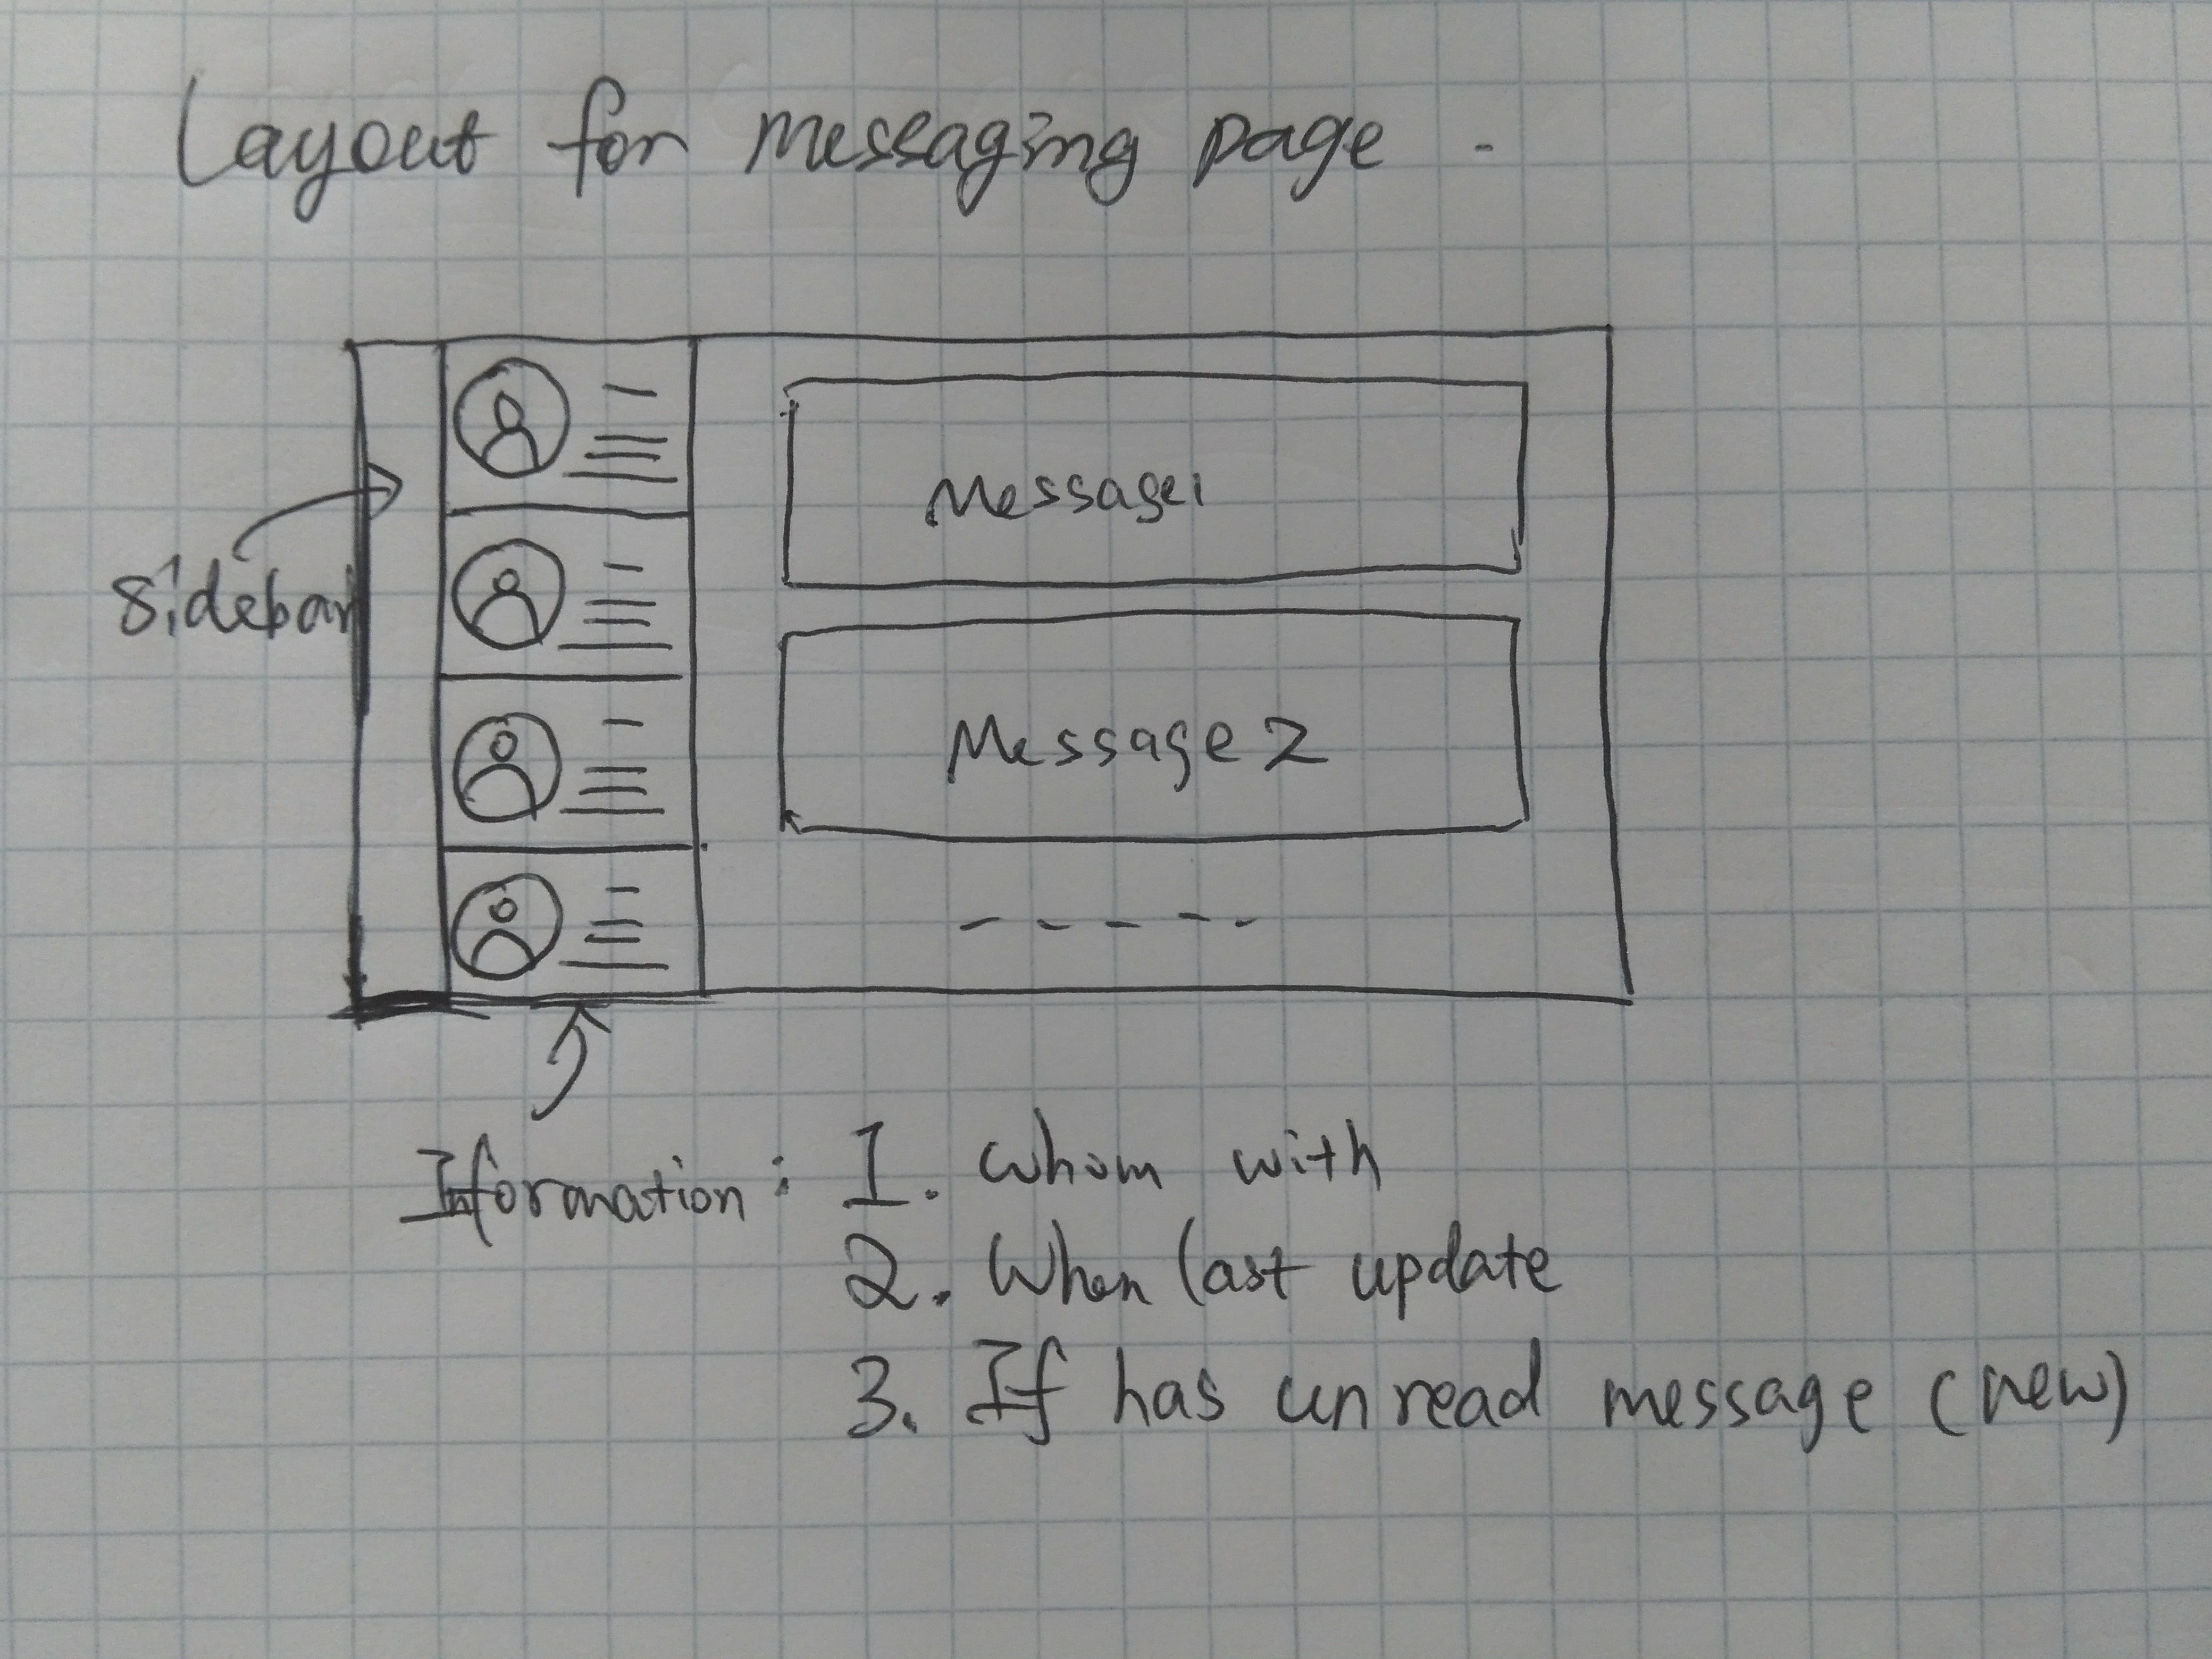 Layout for messaging page -
Message1
sidebar
Message 2
- - - - -
Information: 1. whom with
2. When last update
3. If has unread message (new)